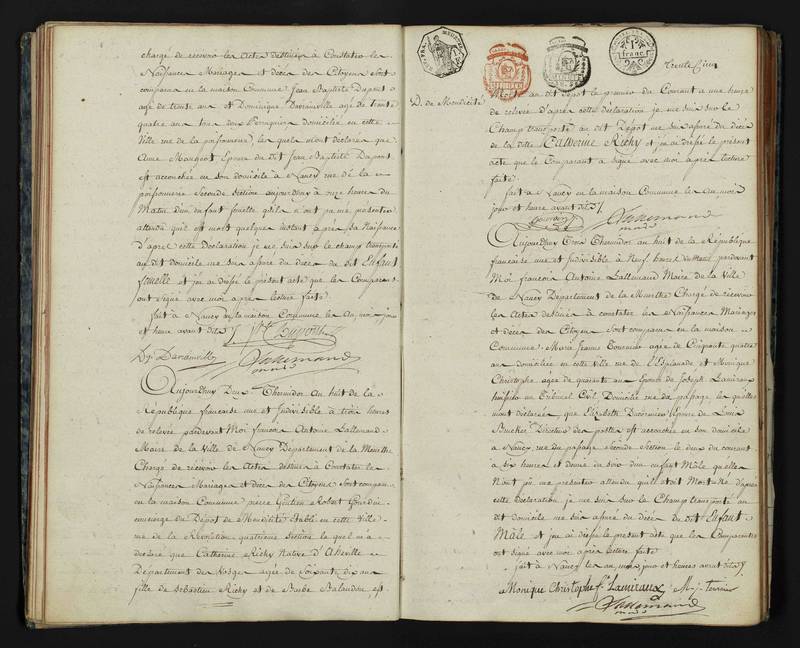 chargé de recevoir les Actes destinés à Constater les
Naissances Mariages et décès des Citoyens sont
comparus en la maison Commune Jean Baptiste Dupont
agé de trente ans et Dominique agé de trente
quatre ans tous deux Perruquiers domiciliés en cette
Ville rue de la poissonnerie les quels m'ont déclaré que
Anne Mangeot Epouse du dit Jean Baptiste Dupont
est accouchée en son domicile à Nancy rue de la
poissonnerie Seconde Section aujourd'huy à onze heures du
Matin d'un Enfant femelle qu'ils n'ont pu me présenter
attendu qu'il est mort quelques instant après sa Naissance
D'après cette Déclaration je me suis sur le champ transporté
au dit domicile me suis assuré du décès du dit Enfant
femelle et j'en ai dressé le présent acte que les Comparants
ont signé avec moi après lecture faite
fait à Nancy en la maison Commune les an, mois jour
et heure avant dits
Dupont
Dque
Lallemand
maire
Aujourd'huy Deux Thermidor an huit de la
République française une et Indivisible à trois heures
de relevée pardevant Moi françois Antoine Lallemand
Maire de la Ville de Nancy Département de la Meurthe
Chargé de recevoir les Actes destinés à Constater les
Naissances Mariages et décès des Citoyens sont comparu
en la maison Commune pierre Robert
concierge du Dépôt de Mendicité Etabli en cette Ville
rue de la Révolution quatrieme Section le quel m'a
déclaré que Catherine Richy Native d'
Département des Vosges agée de Soixante dix ans
fille de Sébastien Richy et de Barbe Balandier, est
1 franc
Trente Cinq
D. de Mendicité
Morte au dit Dépôt le premier du Courant à une heure
de relevée d'après cette déclaration je me suis sur le
Champ transporté au dit Dépôt me suis assuré du décès
de la dite Catherine Richy et j'en ai dressé le présent
acte que le Comparant a signé avec moi après lecture
faite
fait à Nancy en la maison Commune les an, mois
jour et heure avant dits
Lallemand
maire
Aujourd'huy Trois Thermidor an huit de la République
française une et Indivisible à Neuf heures du Matin pardevant
Moi françois Antoine Lallemand Maire de la Ville
de Nancy Département de la Meurthe Chargé de recevoir
les Actes destinés à constater les Naissances Mariages
et décès des Citoyens sont comparus en la maison
Commune Marie Jeanne agée de Cinquante quatre
ans domiciliée en cette ville rue de l'Esplanade, et Monique
Christophe agée de quarante ans Epouse de Joseph Lamiraux
huissier au Tribunal Civil, Domiciliée rue du passage les quelles
m'ont déclaré que Elizabeth Epouse de Louis
Directeur des postes est accouchée en son domicile
à Nancy rue du passage Seconde Section le deux du courant
à six heures et demie du soir d'un enfant Mâle qu'elles
N'ont pu me présenter attendu qu'il étoit Mort né d'après
cette Déclaration je me suis sur le Champ transporté au
dit domicile me suis assuré du décès du dit Enfant
Mâle et j'en ai dressé le présent acte que les Comparantes
ont signé avec moi après lecture faite
fait à Nancy les an, mois, jour et heures avant dits
Monique Christophe fe Lamiraux
Lallemand
maire